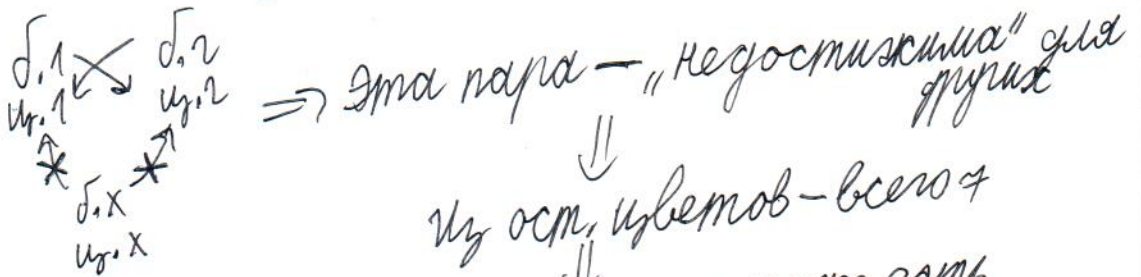 б.1 б.2
цв.1 цв.2 => Эта пара — „недостижима" для других
б.х
цв.х
Из ост. цветов – всего 7